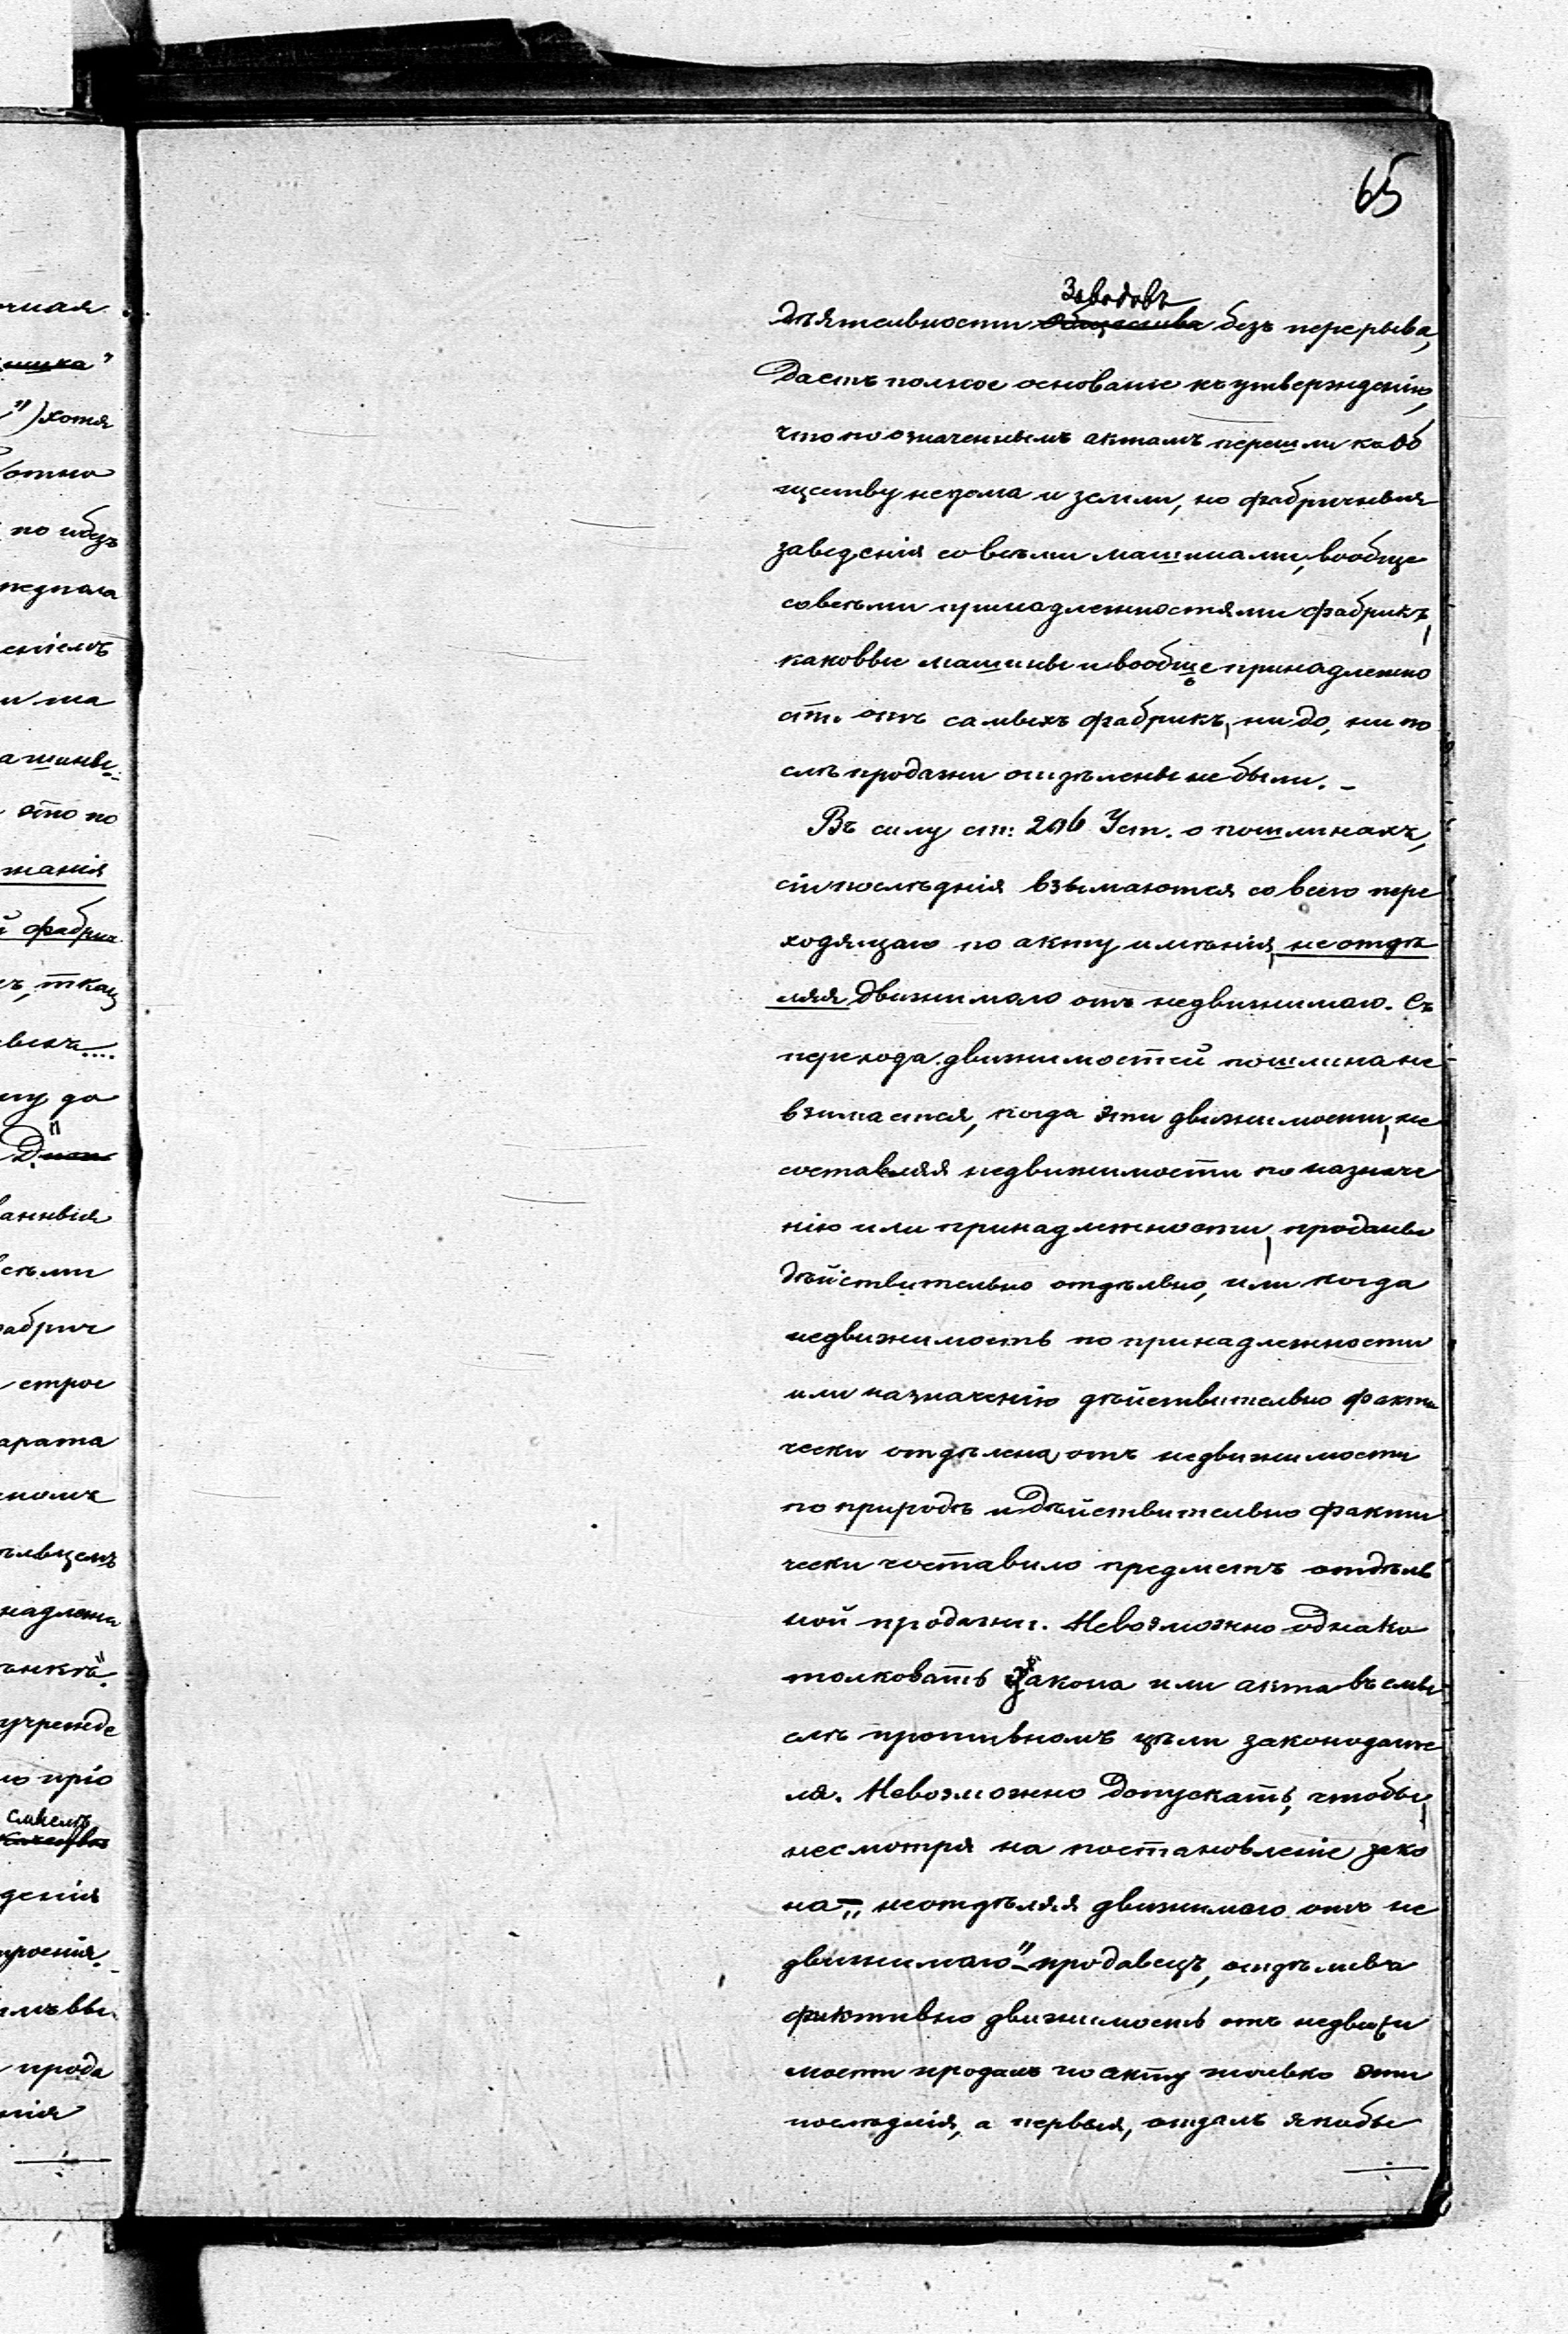 65
Заводовъ
дѣятельности Общества безъ перерыва,
Даетъ полное основаніе къ утвержденію,
что по означеннымъ актамъ перешли къ Об
ществу не дома и земли, но фабричныя
заведенія со всѣми машинами, вообще
со всѣми принадлежностями фабрикъ,
каковые машины и вообще принадлежно
сти отъ самыхъ фабрикъ, ни до, ни по
слѣ продажи отдѣлены не были. –
Въ силу ст: 206 Уст. о пошлинахъ,
сіи послѣднія взымаются со всего пере
ходящаго по акту имѣнія, не отдѣ
ляя движимаго отъ недвижимаго. Съ
перехода движимостей пошлина не
взимается, когда эти движимости, не
составляя недвижимости по назначе
нію или принадлежности, проданы
дѣйствительно отдѣльно, или когда
недвижимость по принадлежности
или назначенію дѣйствительно факти
чески отдѣлена отъ недвижимости
по природѣ и дѣйствительно факти
чески составило предметъ отдѣль
ной продажи. Невозможно однако
толковать Закона или акта въ смы
слѣ противномъ цѣли законодате
ля. Невозможно допускать, чтобы,
несмотря на постановленіе зако
на – „не отдѣляя движимаго отъ не
движимаго" – продавецъ, отдѣливъ
фиктивно движимость отъ недвижи
мости продалъ по акту только эти
послѣднія, а первыя, отдалъ якобы